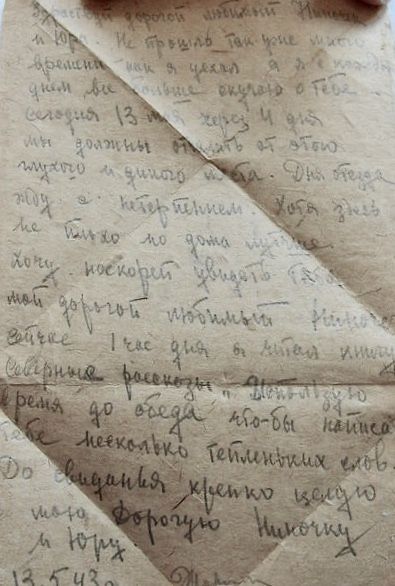 Здраствуй дорогой любимый Ниночка
и Юра. Не прошло так уже много
времени как я уехал а я с каждым
днем все больше скучаю о тебе.
Сегодня 13 мая через 4 дня
мы должны от этого
глухого и дикого места. Дня отъезда
жду с нетерпением. Хотя здесь
не плохо но дома лутше.
хочу наскорей увидать тебя
мой дорогой любимый Ниночка
сейчас 1 час дня я читал книгу
"Северные рассказы". Использую
время до обеда что-бы написать
тебе несколько тепленьких слов.
До свиданья крепко целую
мою дорогую Ниночку
и Юру.
13.5.43г.